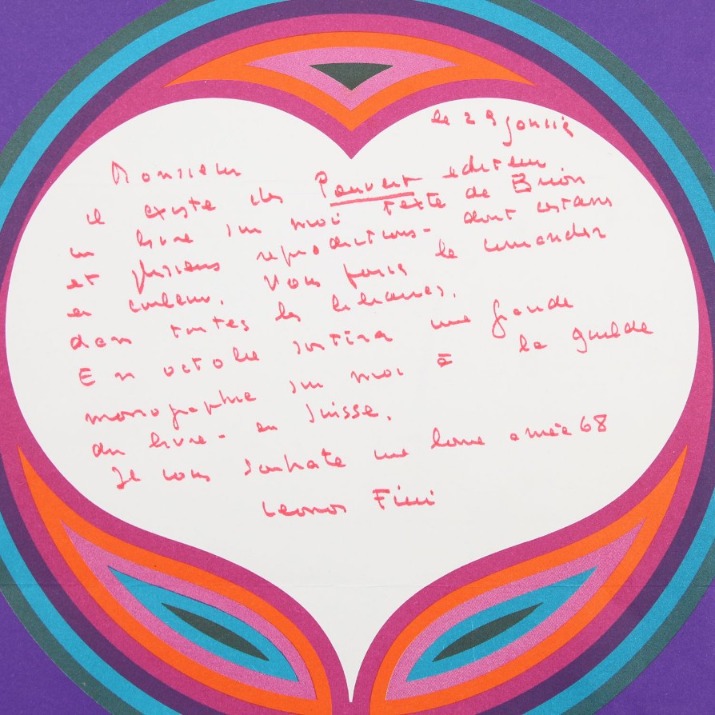 le 29 janvier
Monsieur
il existe chez Pauvert editeur
un livre sur moi texte de Brion
et plusieurs reproductions - dont certains
en couleur. Vous pouvez le comander
dans toutes les librairies.
En octobre sortira une grande
monographie sur moi à la guilde
du livre - en Suisse.
Je vous souhaite une bonne année 68
Leonor Fini